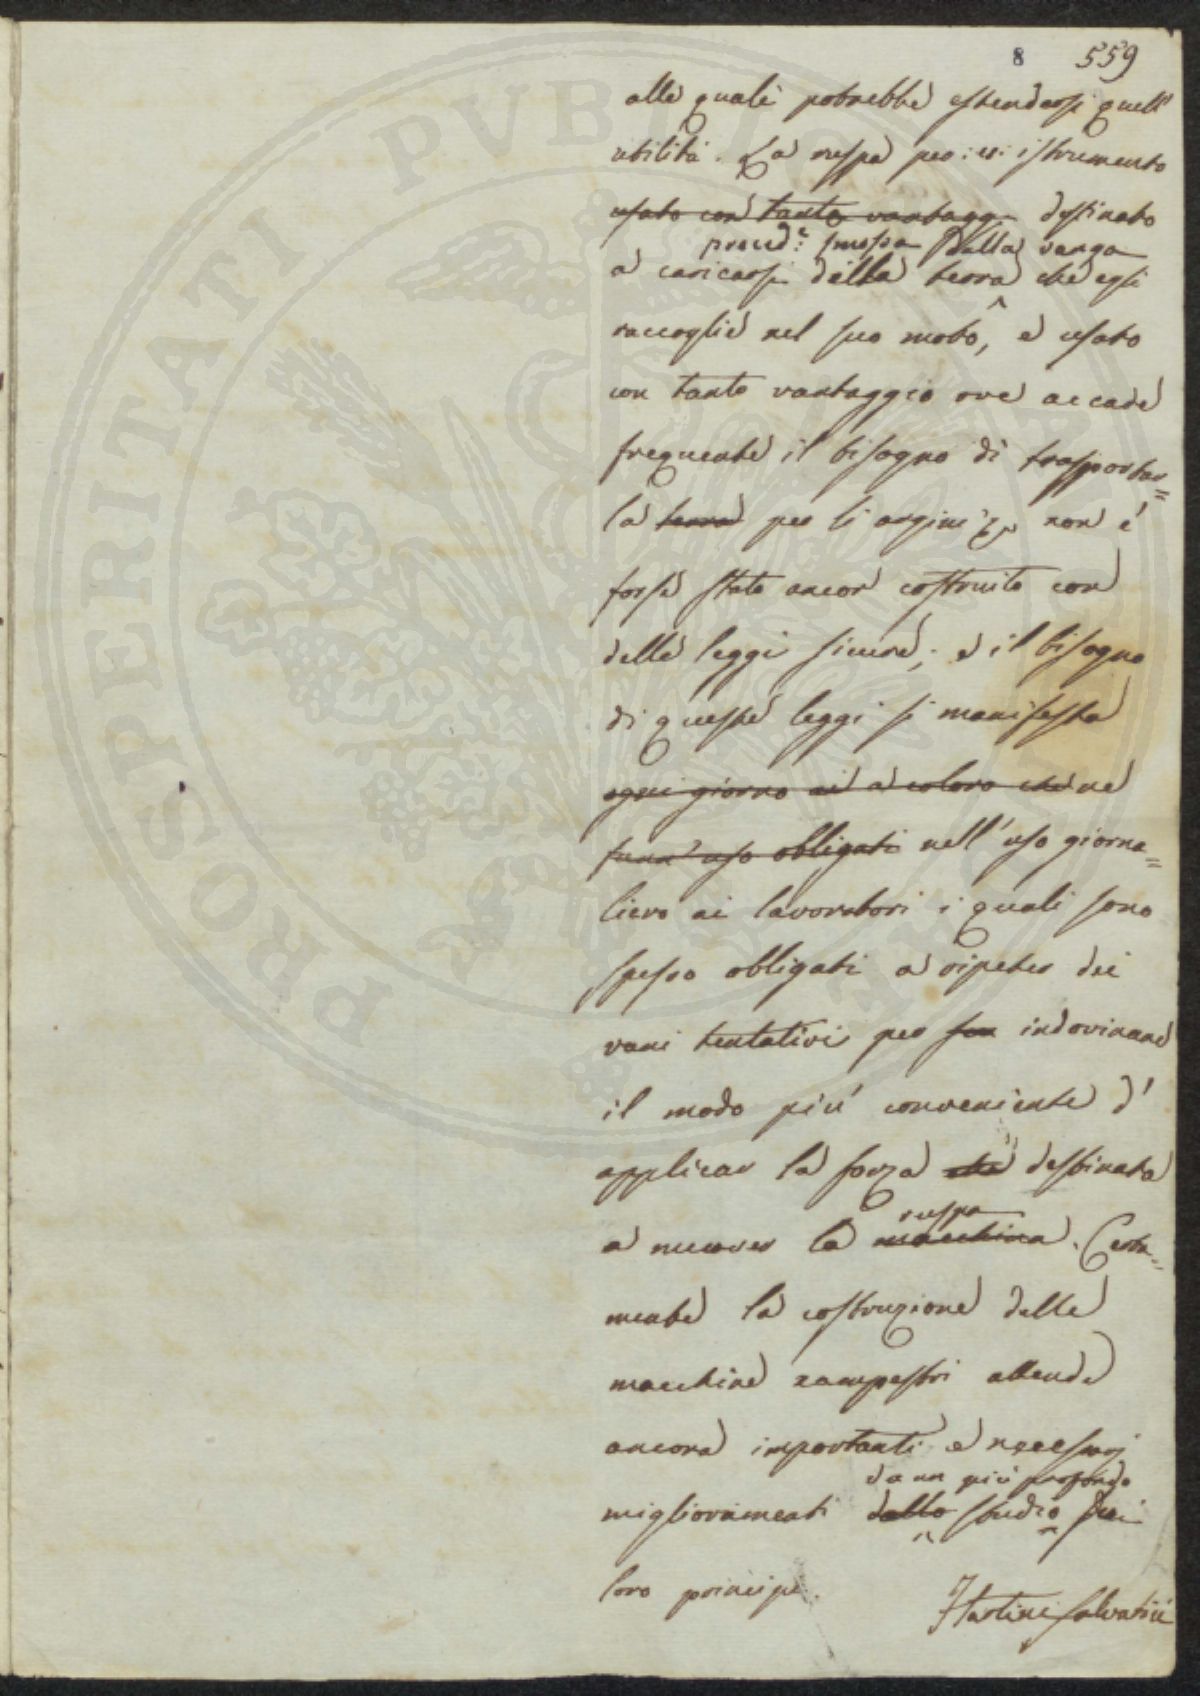 8 559
alle quali potrebbe estendersi quell'
utilità. La ruspa per: es: istrumento
usato con tanto vantaggi destinato
preced.e smossa dalla vanga
a caricarsi della terra che egli
raccoglie nel suo moto, e usato
con tanto vantaggio ove accade
frequente il bisogno di trasportar=
la terra per li argini &c non é
forse stato ancor costruito con
delle leggi sicure; e il bisogno
di queste leggi si manifesta
ogni giorno ai a coloro che ne
fann' uso obligati nell'uso giorna=
liero ai lavoratori i quali sono
spesso obbligati a ripeter dei
vani tentativi per indovinare
il modo piu' conveniente d'
applicar la forza che destinata
ruspa
a muover la macchina. Certa=
mente la costruzione delle
macchine campestri attende
ancora importanti e necessarj
da un più profondo
miglioramenti dallo studio dei
loro principi.